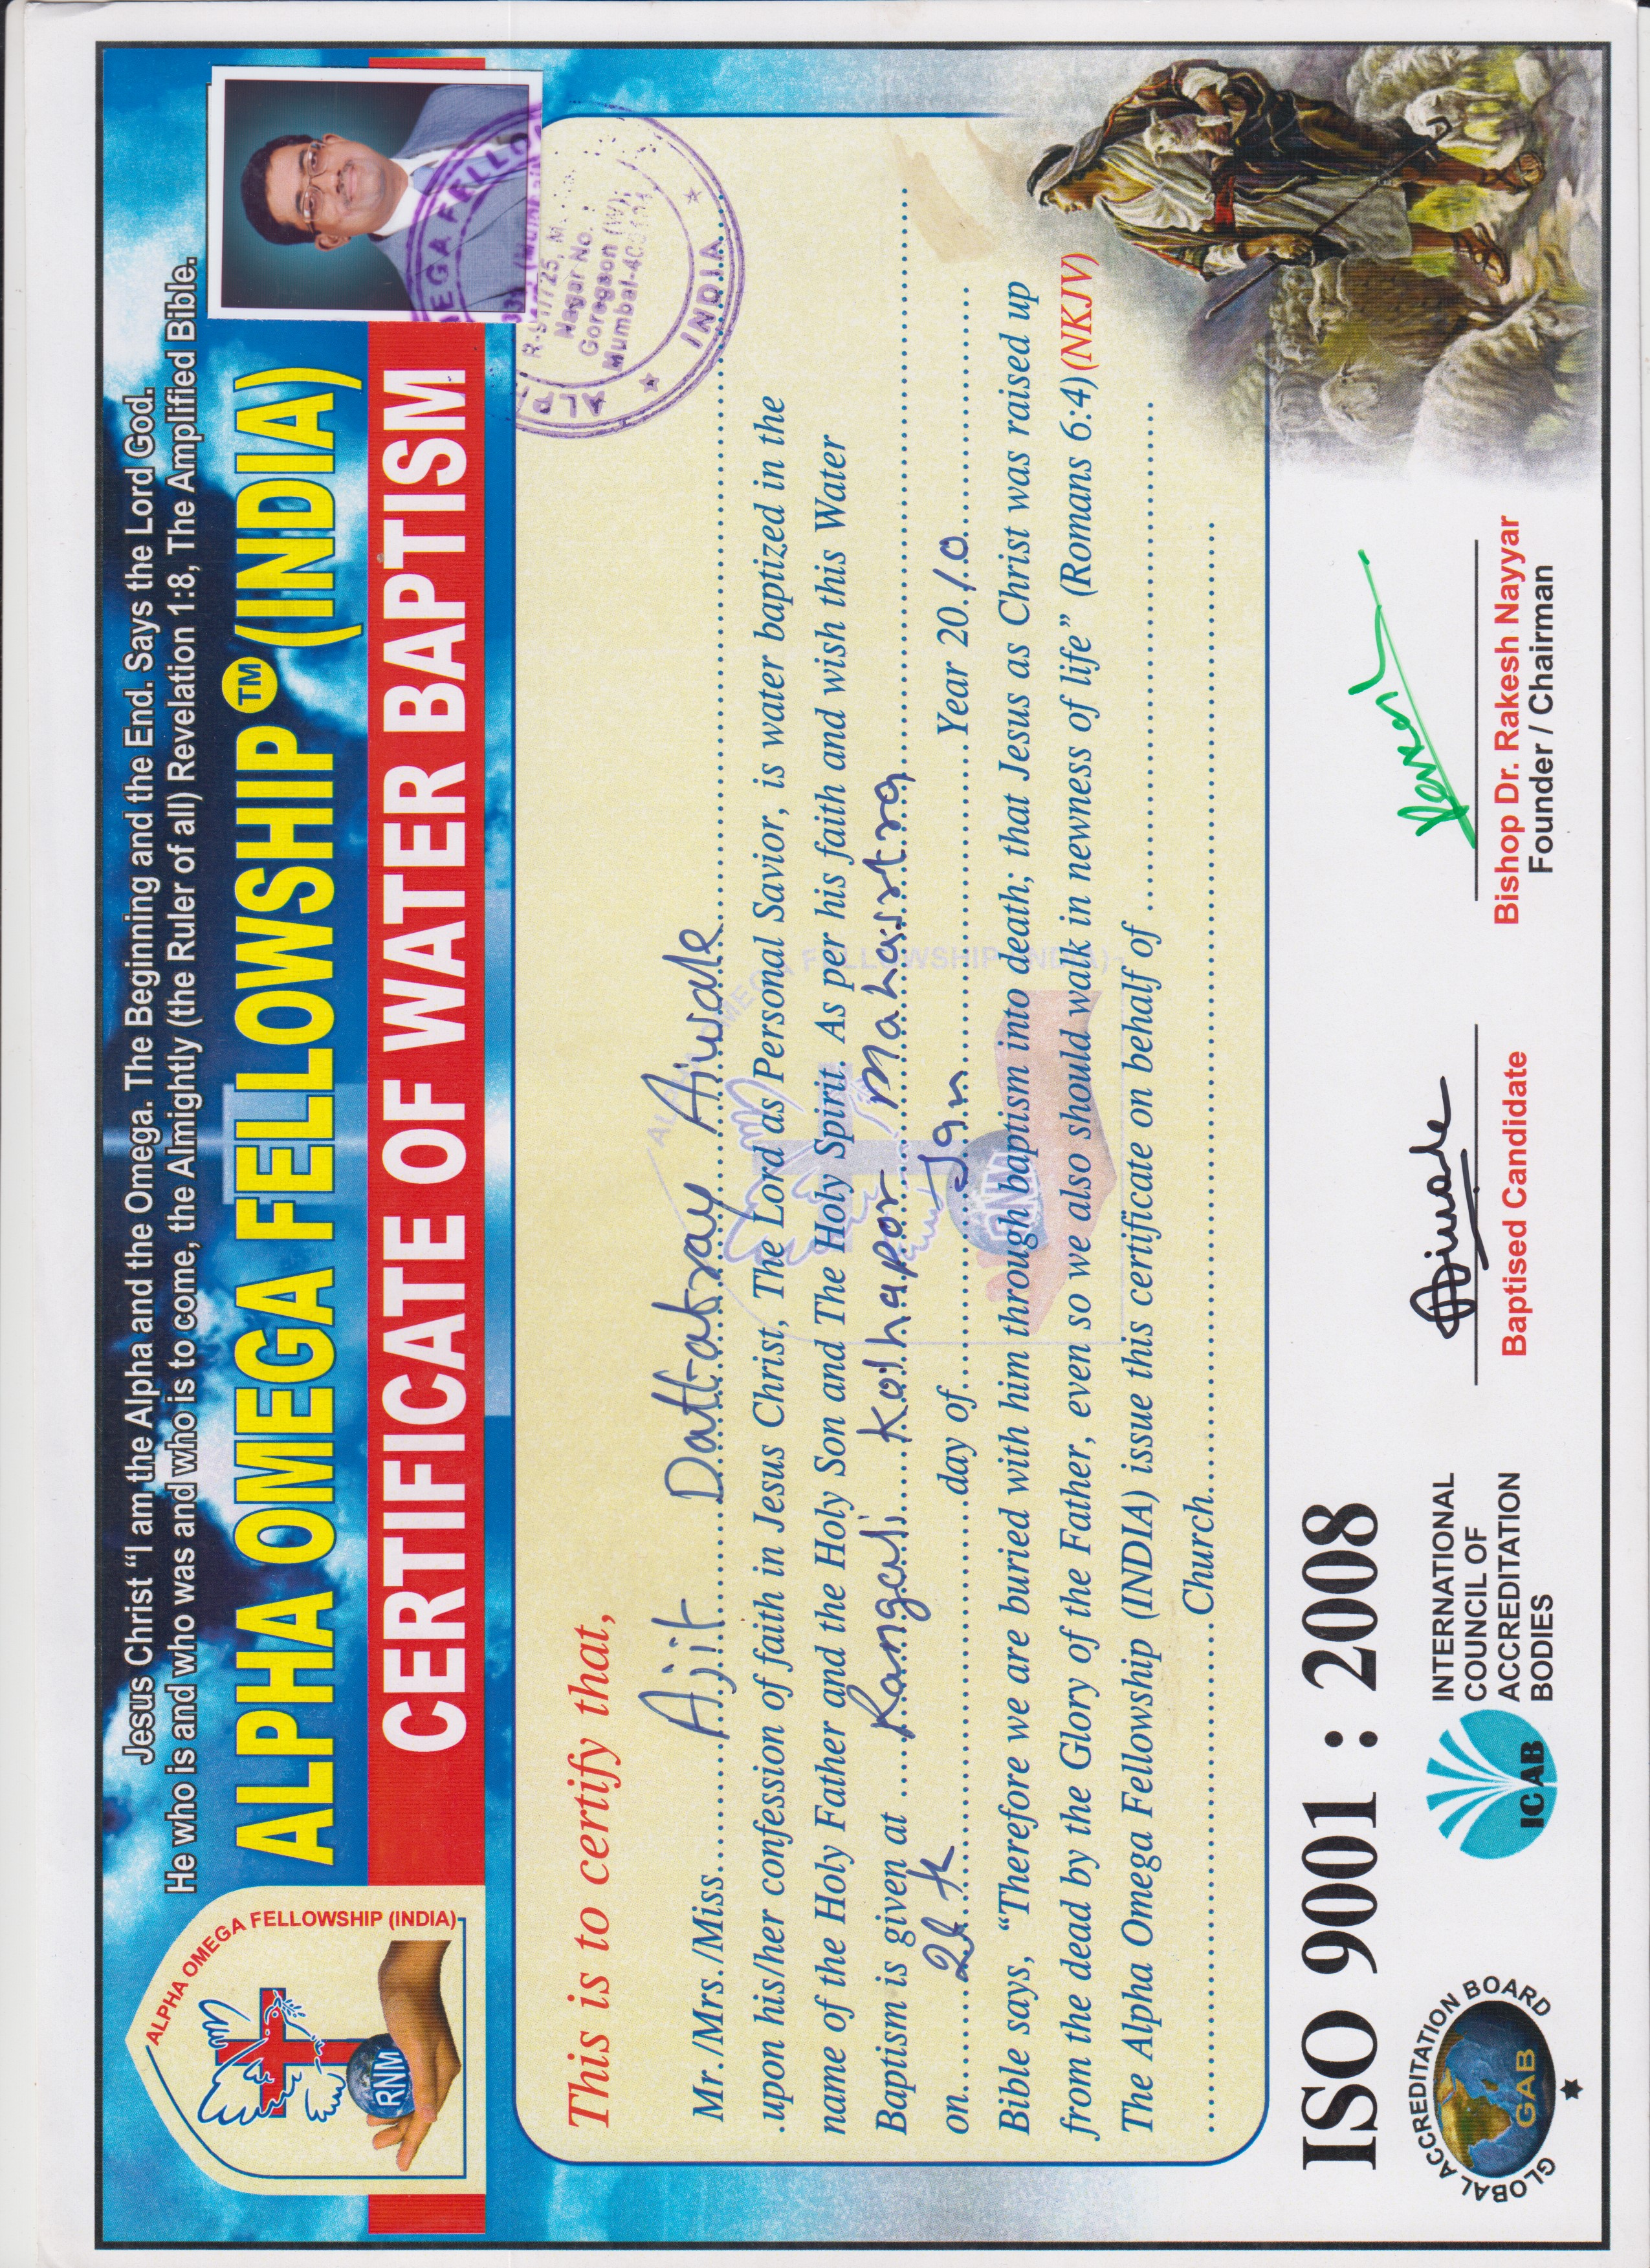 Jesus Christ “I am the Alpha and the Omega. The Beginning and the End. Says the Lord God.
He who is and who was and who is to come, the Almightly (the Ruler of all) Revelation 1:8, The Amplified Bible.
ALPHA OMEGA FELLOWSHIP (INDIA)
RNM
ALPHA OMEGA FELLOWSHIP™ (INDIA)
CERTIFICATE OF WATER BAPTISM
EGA FELLO
ALPH
R-91/125, M
Nagar No.
Goregaon (W),
Mumbai-
INDIA
This is to certify that,
Mr./Mrs./Miss.......... Ajit Dattatray Aiwale
.upon his/her confession of faith in Jesus Christ, The Lord as Personal Savior, is water baptized in the
name of the Holy Father and the Holy Son and The Holy Spirit. As per his faith and wish this Water
Baptism is given at ..... Kolhapor
on........ day of........ Jan ........Year 20.10........
Bible says, “Therefore we are buried with him through baptism into death; that Jesus as Christ was raised up
from the dead by the Glory of the Father, even so we also should walk in newness of life” (Romans 6:4)(NKJV)
The Alpha Omega Fellowship (INDIA) issue this certificate on behalf of ........
........Church........
ISO 9001 : 2008
GLOBAL ACCREDITATION BOARD
GAB
ICAB
INTERNATIONAL
COUNCIL OF
ACCREDITATION
BODIES
Aiwale
Baptised Candidate
Rakesh
Bishop Dr. Rakesh Nayyar
Founder / Chairman